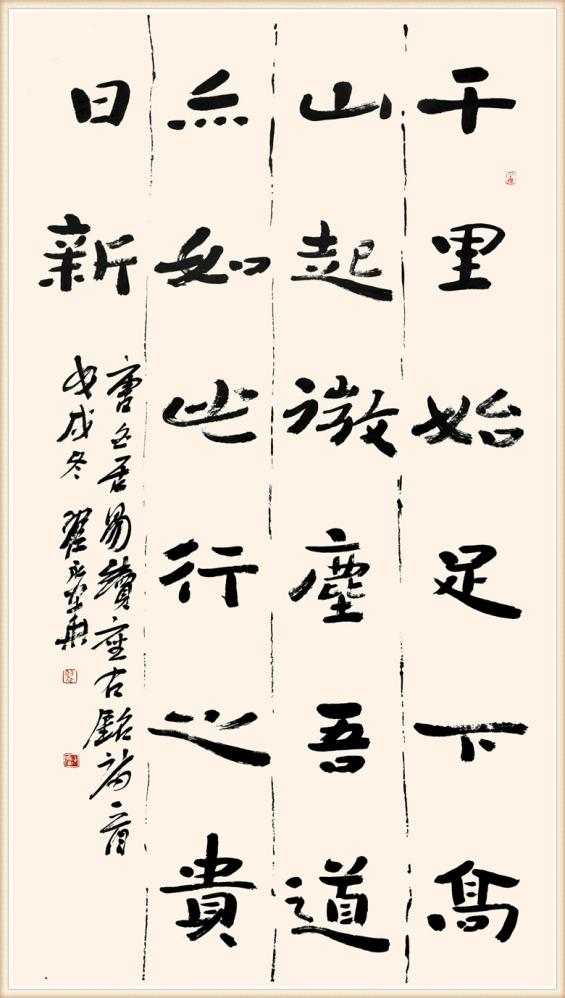 千里始足下高
山起微塵吾道
亦如此行之貴
日新
唐白居易續座右銘詩一首
戊戌冬